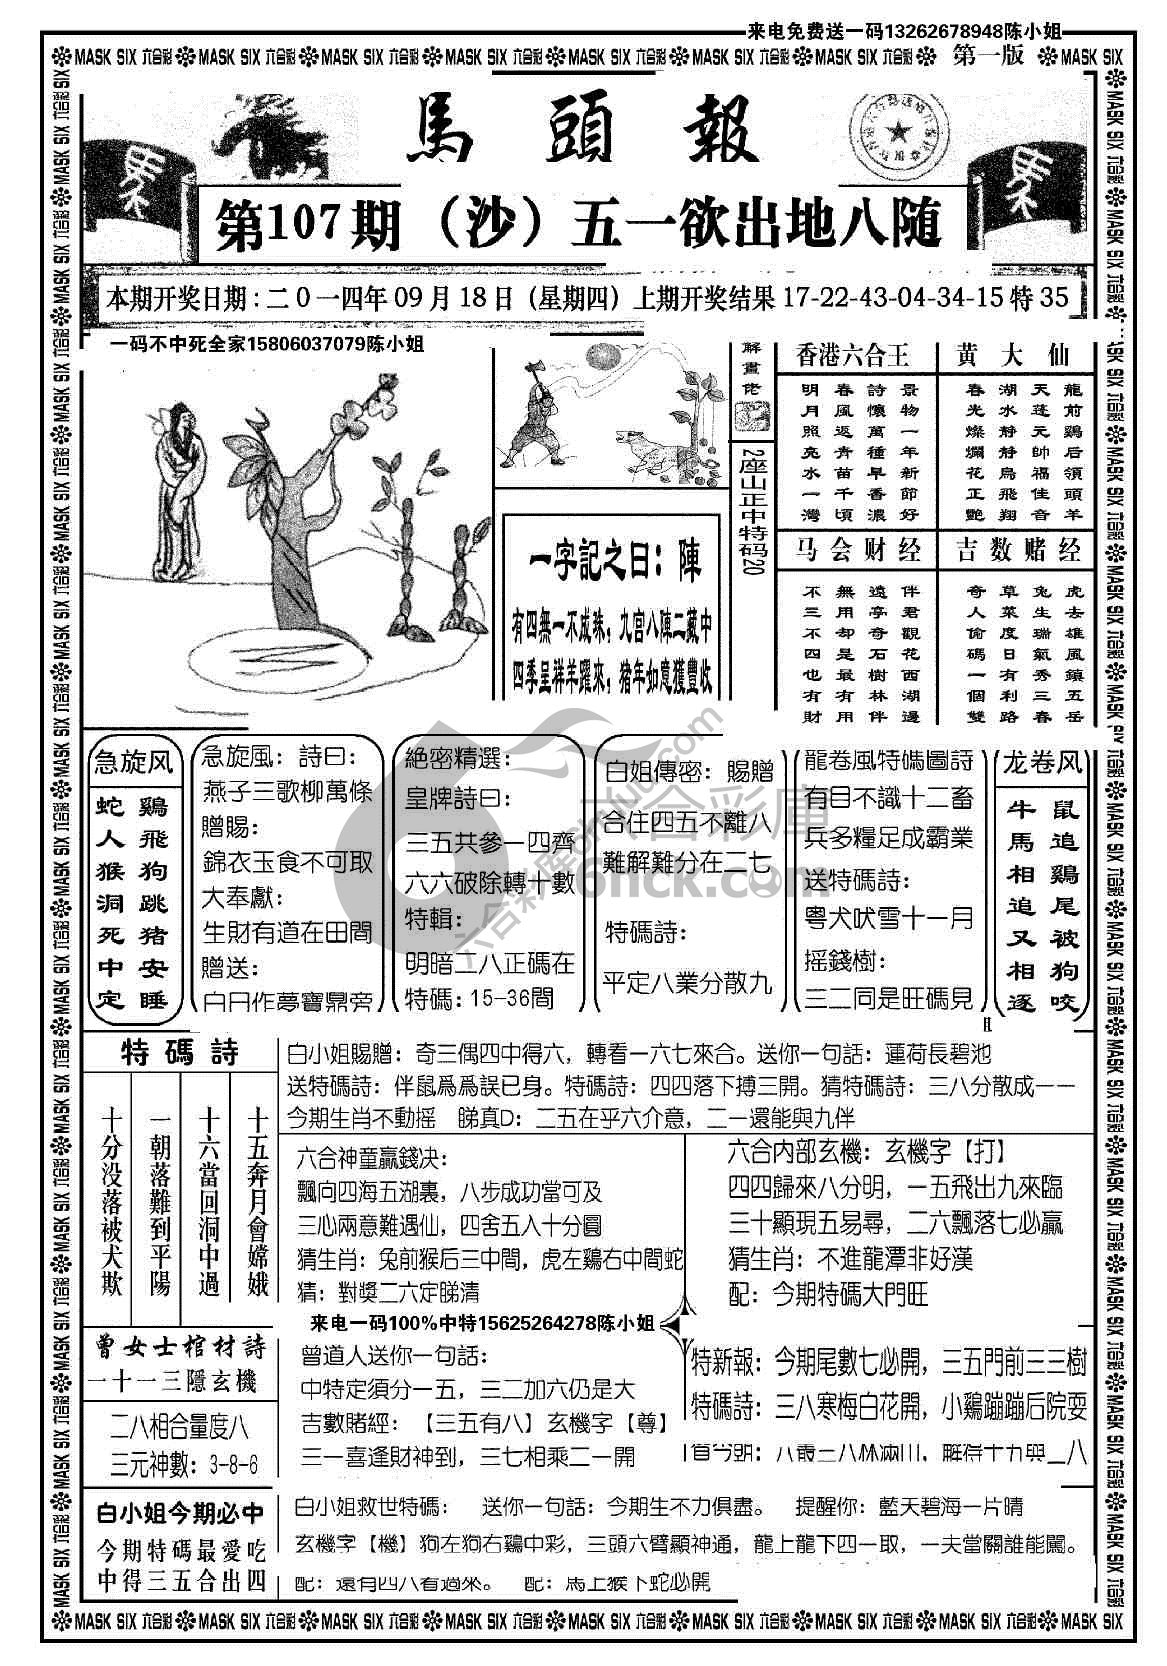 来电免费送一码13262678948陈小姐
MASK SIX 六合彩 MASK SIX 六合彩 MASK SIX 六合彩 MASK SIX 六合彩 MASK SIX 六合彩 MASK SIX 六合彩 MASK SIX 六合彩 第一版 MASK SIX
馬頭報
第107期（沙）五一欲出地八随
本期开奖日期：二0一四年09月18日（星期四）上期开奖结果17-22-43-04-34-15特35
一码不中死全家15806037079陈小姐
解畫佬
2座山正中特码20
一字記之曰：陳
有四無一不成殊，九宫八陣二藏中
四季呈祥羊躍來，猪年如意獲豐收
香港六合王
景物一年新節好
詩懷萬種早香濃
春風返青苗千頃
明月照亮水一灣
黄大仙
龍前鷄后領頭羊
天蓬元帥福佳音
湖水静静鳥飛翔
春光燦爛花正艷
马会财经
伴君觀花西湖邊
遠亭奇石樹林伴
無用却是最有用
不三不四也有財
吉数赌经
虎去雄風鎮五岳
兔生瑞氣秀三春
草菜度日有利路
奇人偷碼一個雙
急旋风
鷄飛狗跳猪安睡
蛇人猴洞死中定
急旋風：詩曰：
燕子三歌柳萬條
贈賜：
錦衣玉食不可取
大奉獻：
生財有道在田間
贈送：
白日作夢寶鼎旁
絶密精選：
皇牌詩曰：
三五共參一四齊
六六破除轉十數
特輯：
明暗二八正碼在
特碼：15-36間
白姐傳密：賜贈
合住四五不離八
難解難分在二七
特碼詩：
平定八業分散九
龍卷風特碼圖詩
有目不識十二畜
兵多糧足成霸業
送特碼詩：
粤犬吠雪十一月
摇錢樹：
三二同是旺碼見
龙卷风
鼠追鷄尾被狗咬
牛馬相追又相逐
特碼詩
十五奔月會嫦娥
十六當回洞中過
一朝落難到平陽
十分没落被犬欺
白小姐賜贈：奇三偶四中得六，轉看一六七來合。送你一句話：蓮荷長碧池
送特碼詩：伴鼠爲爲誤已身。特碼詩：四四落下搏三開。猜特碼詩：三八分散成一一
今期生肖不動摇 睇真D：二五在乎六介意，二一還能與九伴
六合神童赢錢决：
飄向四海五湖裏，八步成功當可及
三心兩意難遇仙，四舍五入十分圓
猜生肖：兔前猴后三中間，虎左鷄右中間蛇
猜：對獎二六定睇清
六合内部玄機：玄機字【打】
四四歸來八分明，一五飛出九來臨
三十顯現五易尋，二六飄落七必赢
猜生肖：不進龍潭非好漢
配：今期特碼大門旺
来电一码100%中特15625264278陈小姐
曾女士棺材詩
一十一三隱玄機
二八相合量度八
三元神數：3-8-6
曾道人送你一句話：
中特定須分一五，三二加六仍是大
吉數賭經：【三五有八】玄機字【尊】
三一喜逢財神到，三七相乘二一開
特新報：今期尾數七必開，三五門前三三樹
特碼詩：三八寒梅白花開，小鷄蹦蹦后院耍
白小姐今期必中
今期特碼最愛吃
中得三五合出四
白小姐救世特碼： 送你一句話：今期生不力俱盡。 提醒你：藍天碧海一片晴
玄機字【機】狗左狗右鷄中彩，三頭六臂顯神通，龍上龍下四一取，一夫當關誰能闖。
配：還有四八看過來。 配：馬上猴下蛇必開
MASK SIX 六合彩 MASK SIX 六合彩 MASK SIX 六合彩 MASK SIX 六合彩 MASK SIX 六合彩 MASK SIX 六合彩 MASK SIX 六合彩 MASK SIX 六合彩 MASK SIX
六合彩庫
6hck.com